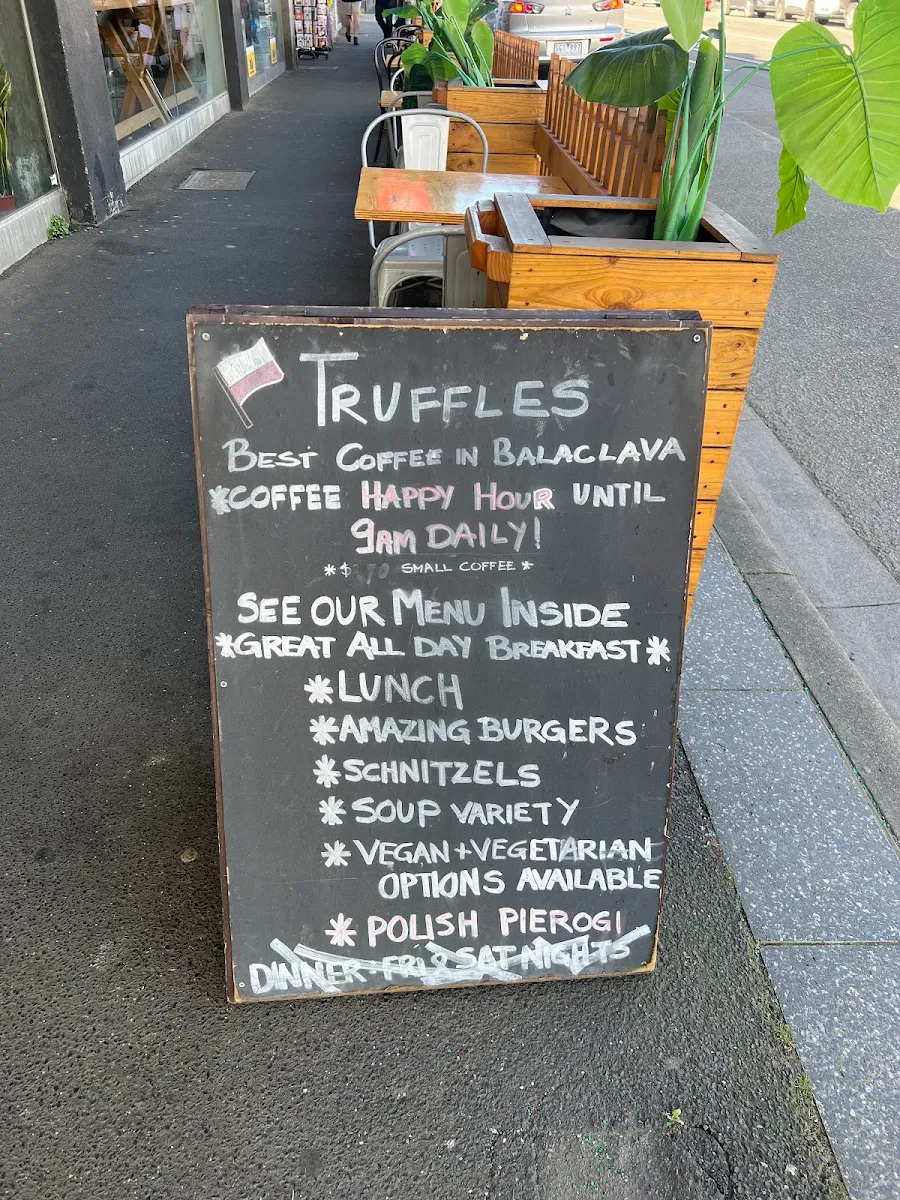 TRUFFLES
BEST COFFEE IN BALACLAVA
*COFFEE HAPPY HOUR UNTIL
9AM DAILY!
SMALL COFFEE *
SEE OUR MENU INSIDE
*GREAT ALL DAY BREAKFAST*
*LUNCH
*AMAZING BURGERS
*SCHNITZELS
*SOUP VARIETY
*VEGAN+VEGETARIAN
OPTIONS AVAILABLE
*POLISH PIEROGI
DINNER-FRI & SAT NIGHTS